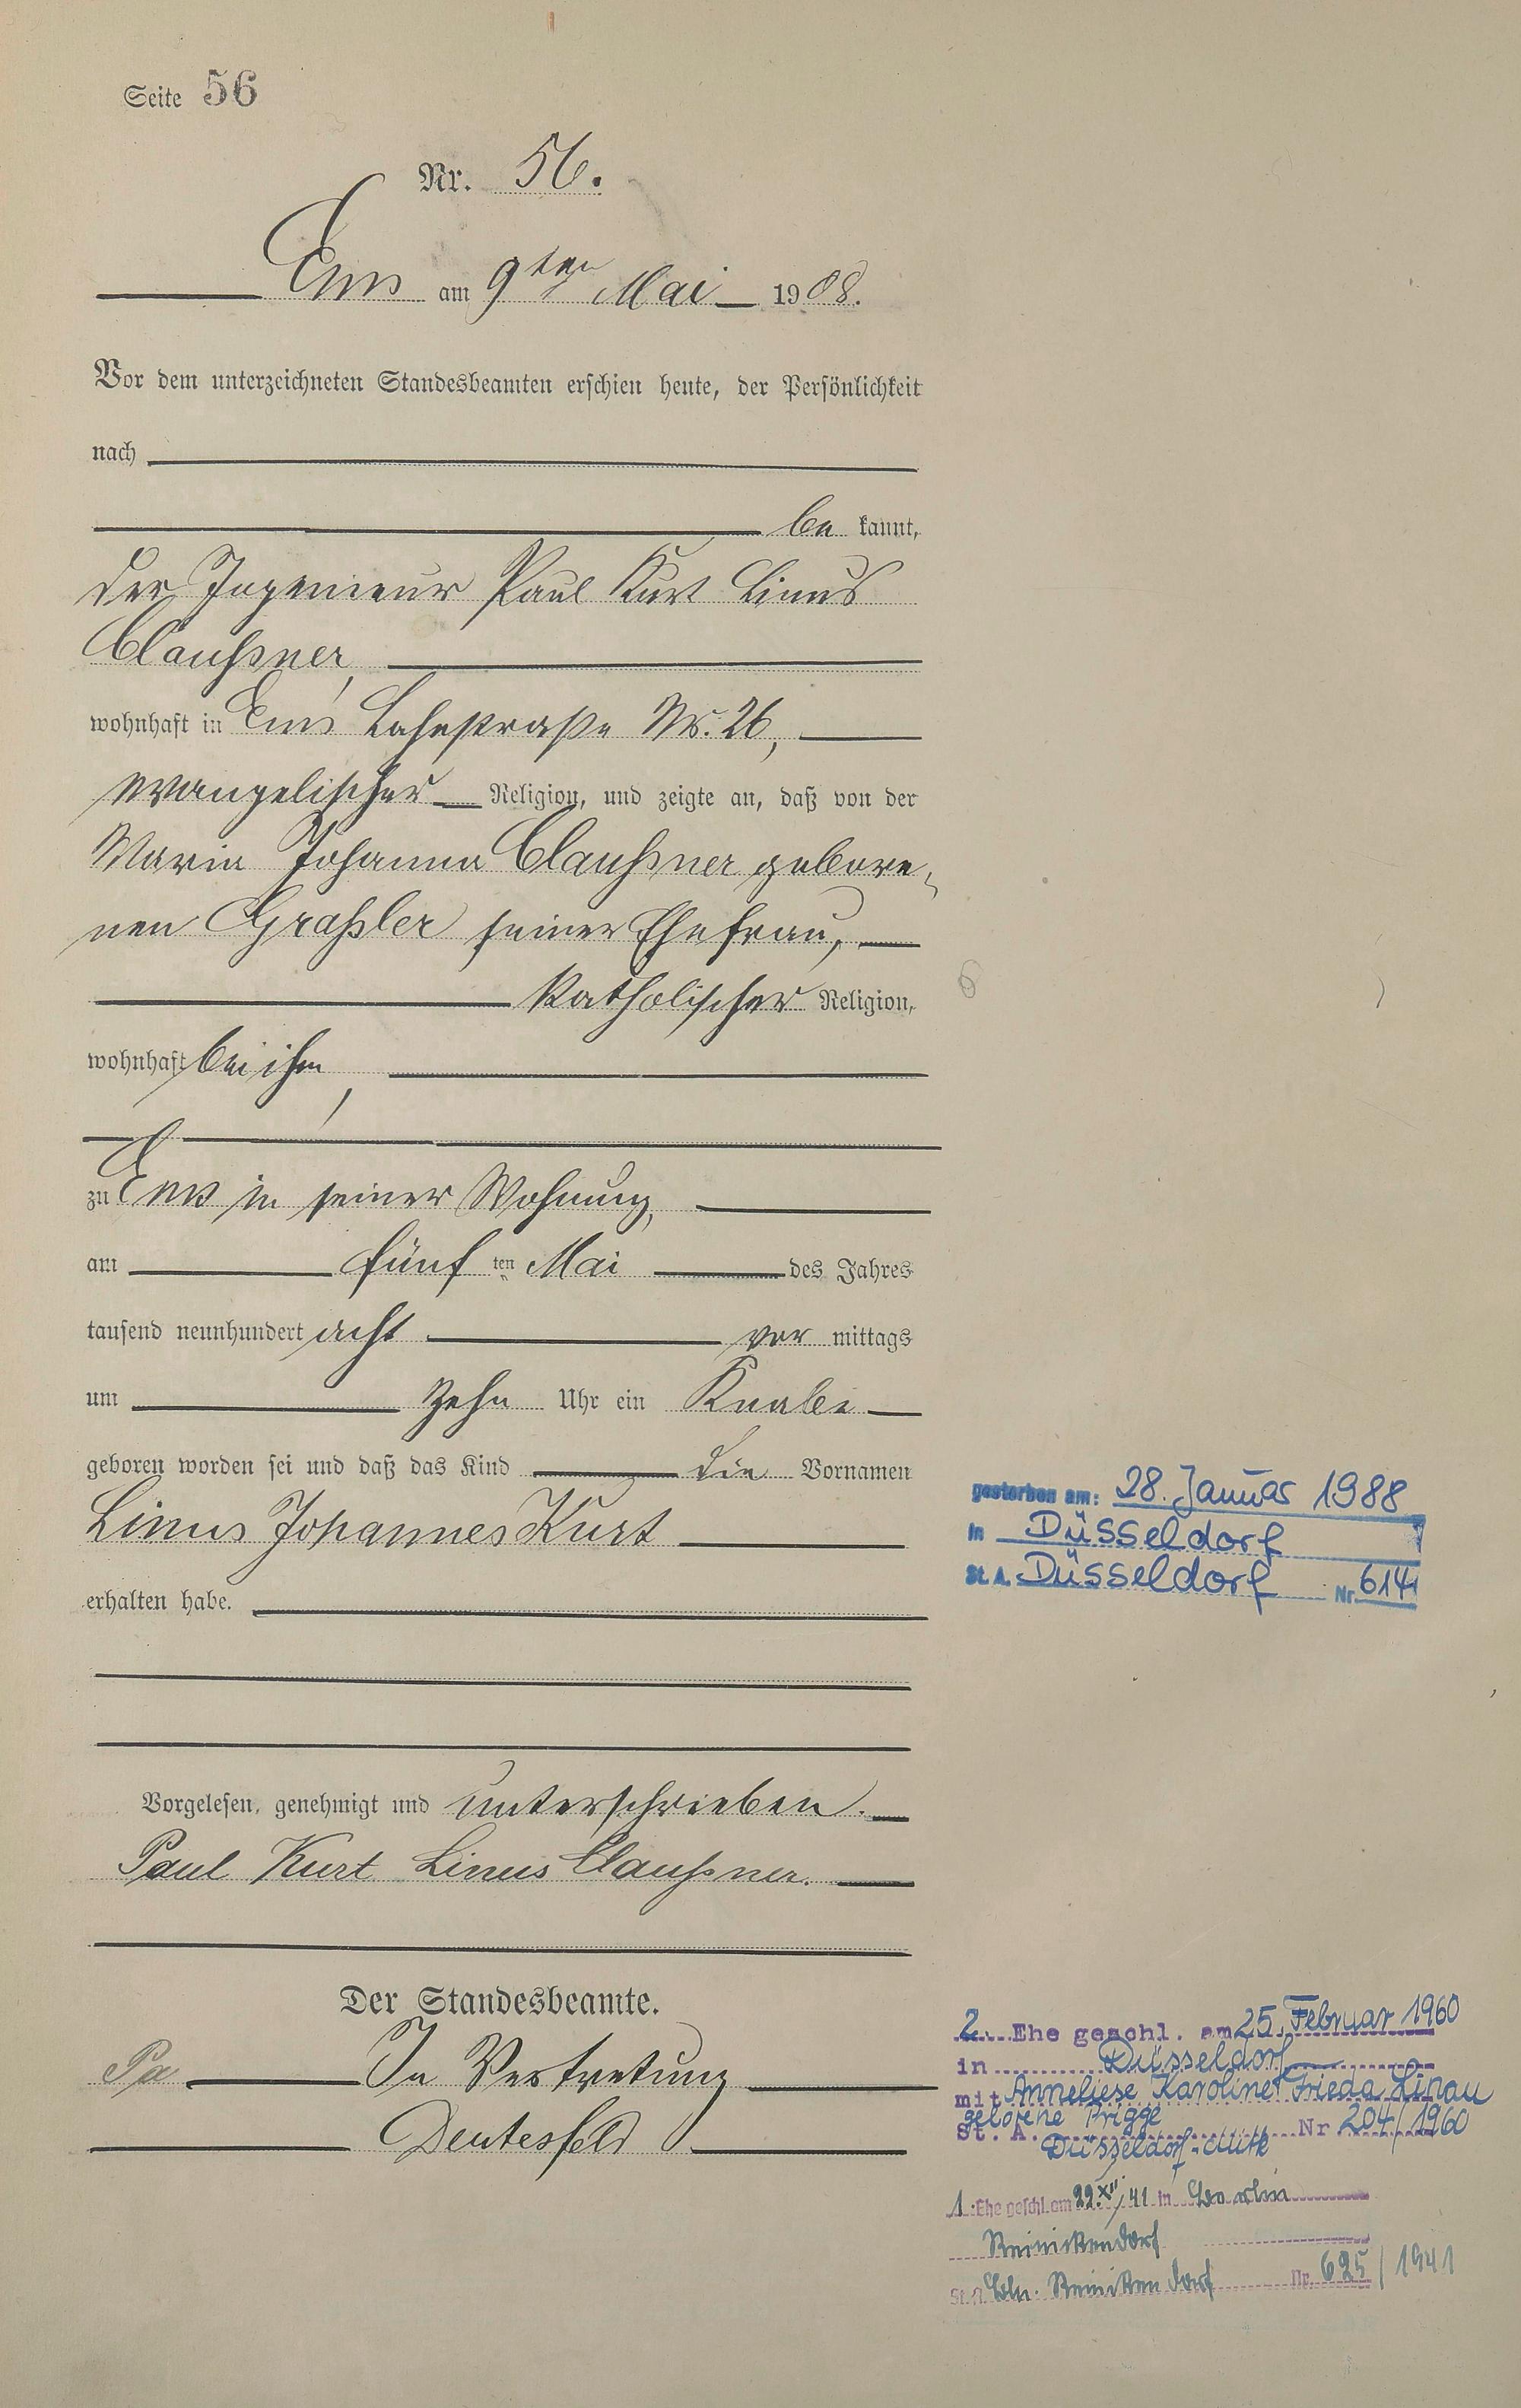 Seite 56
Nr. 56.
Ems am 9ten Mai 1908.
Vor dem unterzeichneten Standesbeamten erschien heute, der Persönlichkeit
nach
be kannt,
der Ingenieur Paul Kurt Linus
Claußner,
wohnhaft in Ems Lahnstraße Nr. 26,
evangelischer Religion, und zeigte an, daß von der
Maria Johanna Claußner gebore-
nen Graßler seiner Ehefrau,
katholischer Religion,
wohnhaft bei ihm,
zu Ems in seiner Wohnung,
am fünf ten Mai des Jahres
tausend neunhundert acht vor mittags
um zehn Uhr ein Knabe
geboren worden sei und daß das Kind die Vornamen
Linus Johannes Kurt
erhalten habe.
Vorgelesen, genehmigt und unterschrieben.
Paul Kurt Linus Claußner.
Der Standesbeamte.
In Vertretung
Deutesfeld
gestorben am: 28. Januar 1988
in Düsseldorf
St. A. Düsseldorf Nr. 614
2. Ehe geschl. am 25. Februar 1960
in Düsseldorf
mit Anneliese Karoline Frieda Linau
geborene Prigge
St. A. Düsseldorf-Mitte Nr 204/1960
1. Ehe geschl. am 22.XII/41 in Berlin
Reinickendorf
St. A. Bln. Reinikendorf Nr. 625/1941